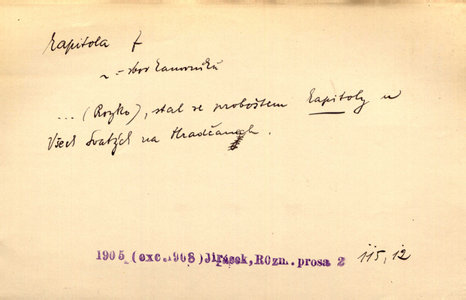 kapitola f
~ = sbor kanovníků
... (Rozko), stal se proboštem kapitoly u
Všech Svatých na Hradčanech.
1905 (exc. 1968) Jirásek, Rozm. prosa 2 115, 12